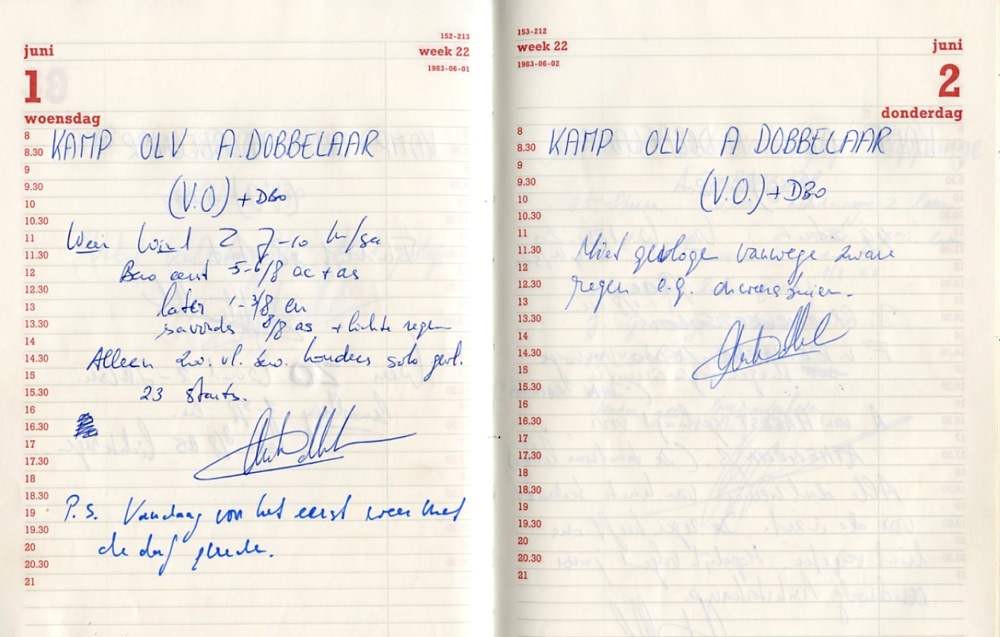 juni
152-213
week 22
1983-06-01
1
woensdag
8
8.30
9
9.30
10
10.30
11
11.30
12
12.30
13
13.30
14
14.30
15
15.30
16
16.30
17
17.30
18
18.30
19
19.30
20
20.30
21
KAMP OLV A.DOBBELAAR
(V.O) + DBO
Weer Wind Z 7-10 km/sa
Bew eerst 5-6/8 ac + as
later 1-3/8 en
savonds 8/8 as + lichte regen
Alleen zw. vl. solo gevl.
23 starts.
P.S. Vandaag voor het eerst weer met
de dbf
153-212
week 22
1983-06-02
juni
2
donderdag
8
8.30
9
9.30
10
10.30
11
11.30
12
12.30
13
13.30
14
14.30
15
15.30
16
16.30
17
17.30
18
18.30
19
19.30
20
20.30
21
KAMP OLV A DOBBELAAR
(V.O.) + DBO
Niet gevlogen vanwege zware
regen e.g. onweersbuien.